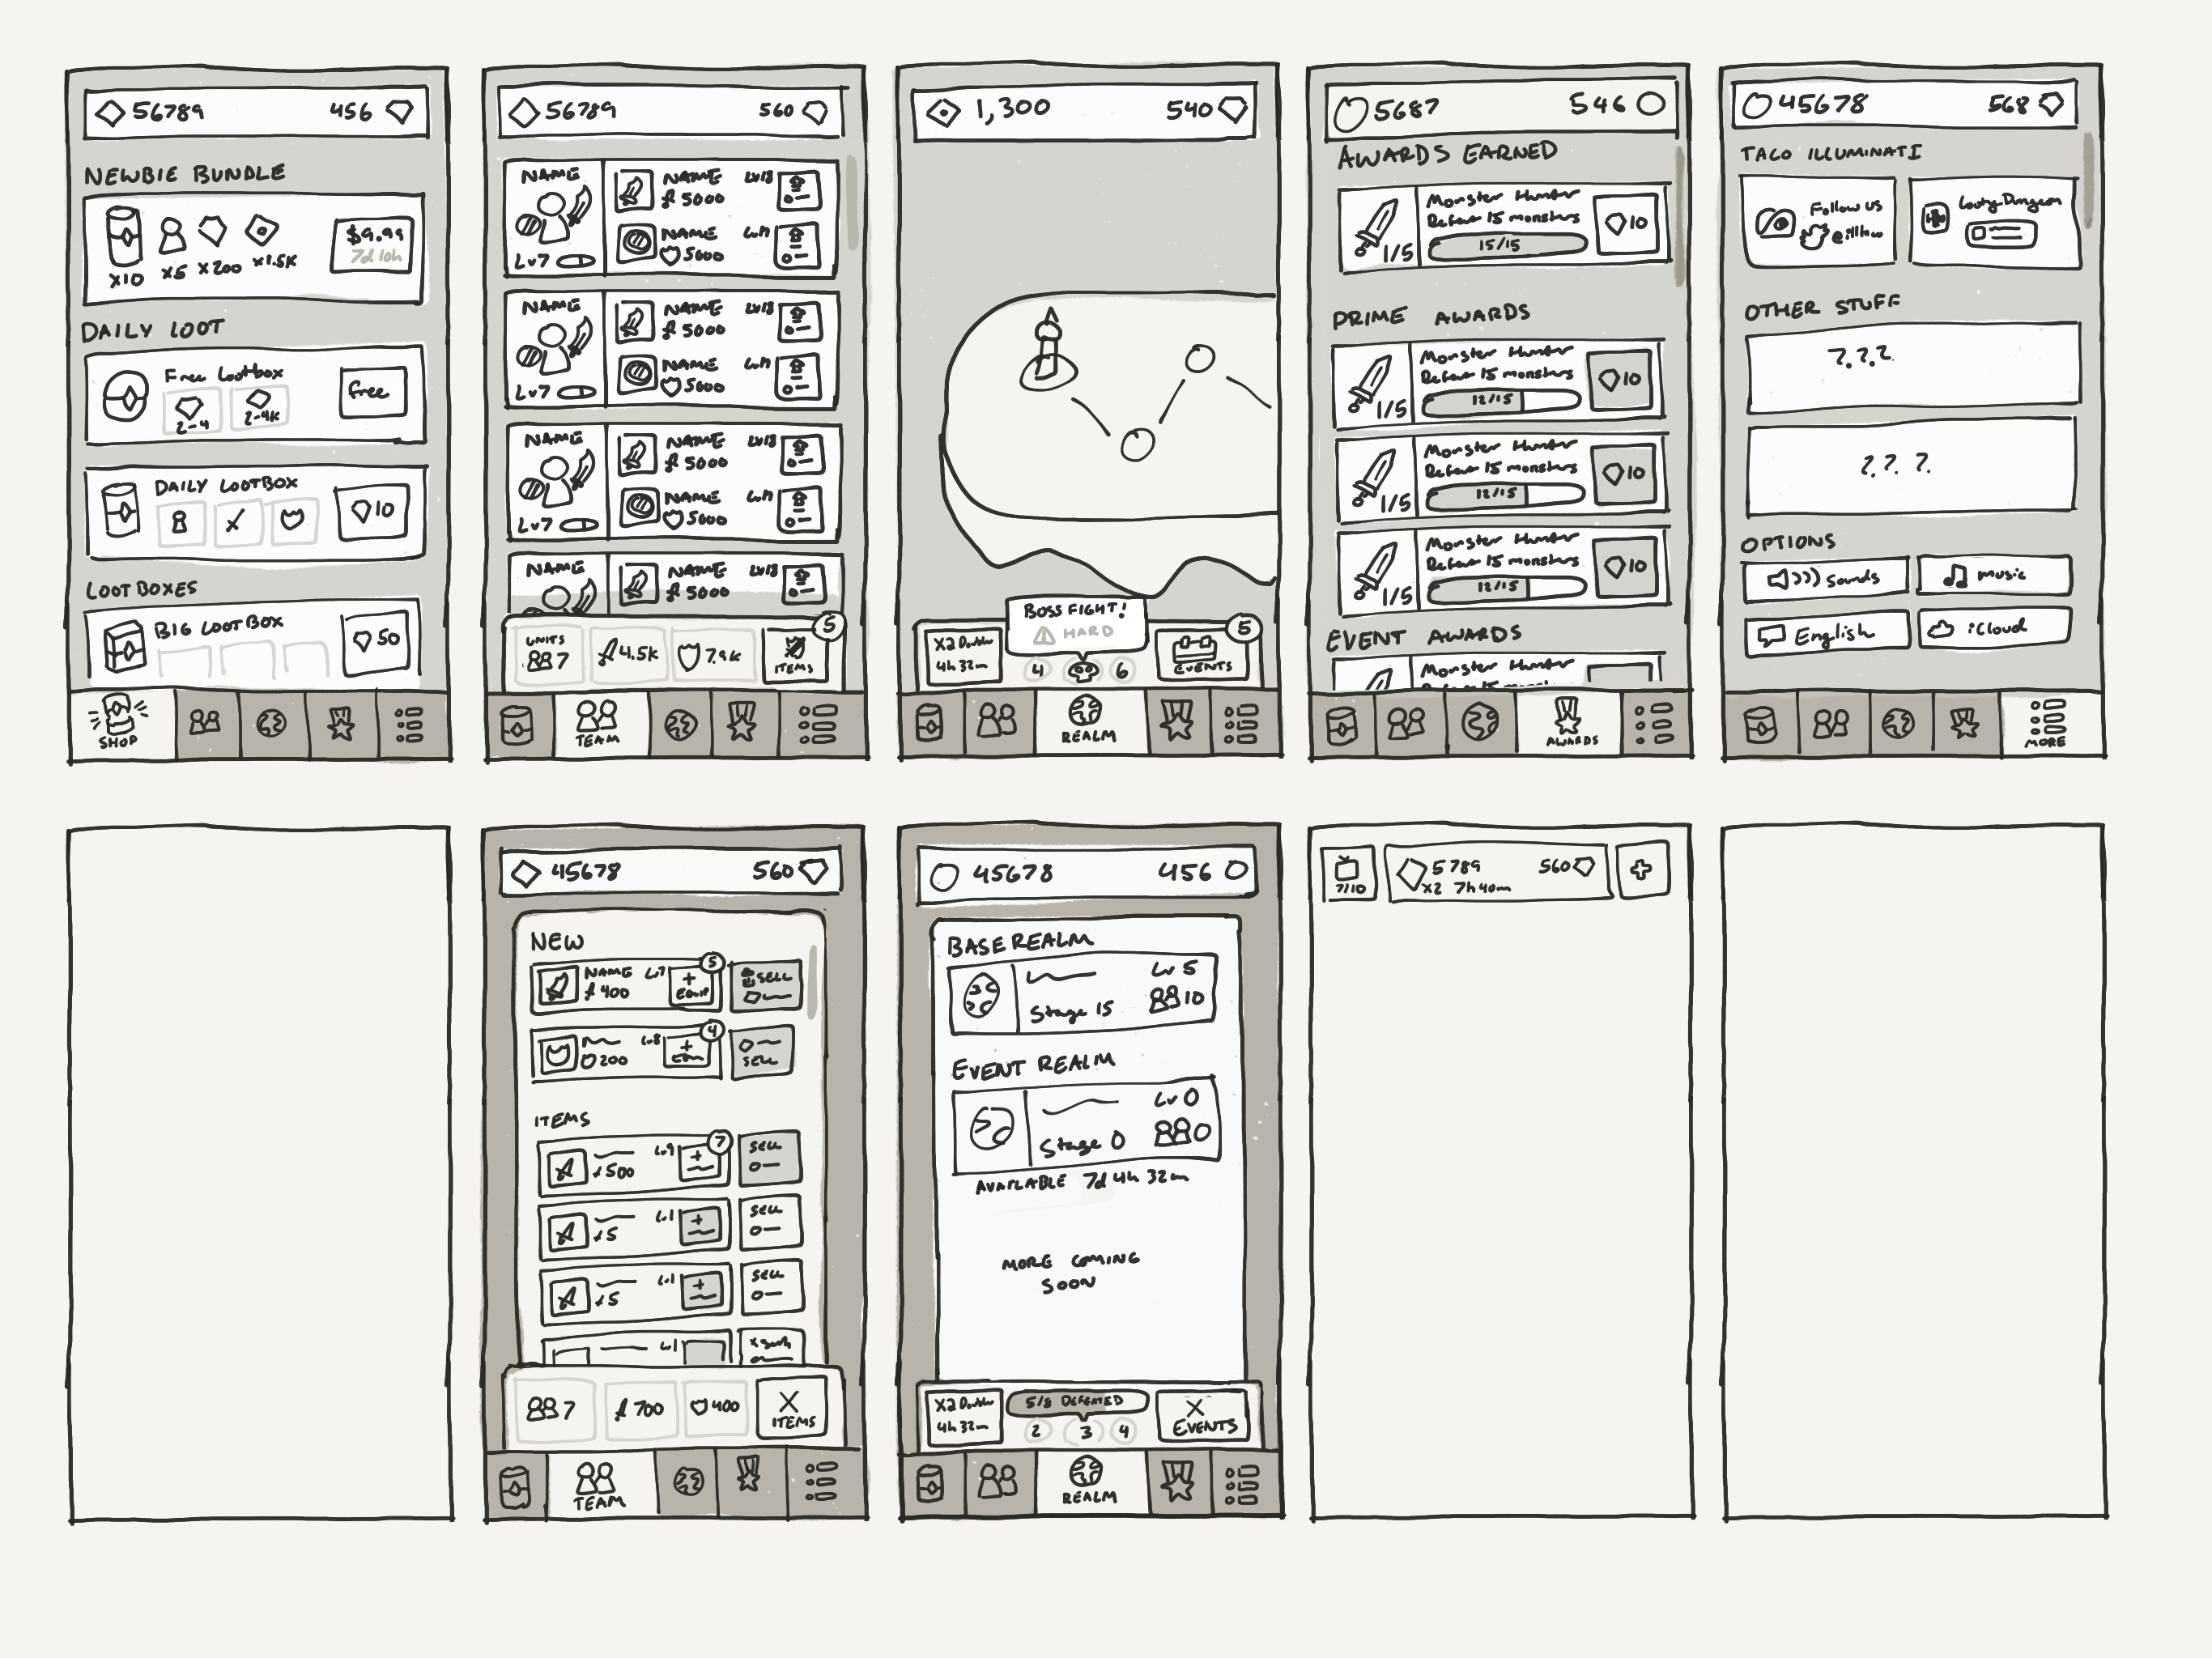 56789 456
NEWBIE BUNDLE
x10 x5 x200 x1.5K
$9.99
7d 10h
DAILY LOOT
Free Lootbox
2-4 2-4K
Free
DAILY LOOTBOX
10
LOOTBOXES
BIG LOOTBOX
50
SHOP
56789 560
NAME
Lv7
NAME Lv18
5000
NAME
5000
NAME
Lv7
NAME Lv18
5000
NAME
5000
NAME
Lv7
NAME Lv18
5000
NAME
5000
NAME
NAME Lv18
5000
UNITS
7
4.5K
7.9K
ITEMS
5
TEAM
1,300 540
X2 Double
4h 32m
BOSS FIGHT!
HARD
4 6
EVENTS
5
REALM
5687 546
AWARDS EARNED
Monster Hunter
Defeat 15 monsters
1/5 15/15
10
PRIME AWARDS
Monster Hunter
Defeat 15 monsters
1/5 12/15
10
Monster Hunter
Defeat 15 monsters
1/5 12/15
10
Monster Hunter
Defeat 15 monsters
1/5 12/15
10
EVENT AWARDS
Monster Hunter
AWARDS
45678 568
TACO ILLUMINATI
Follow us
Looty Dungeon
OTHER STUFF
?.?.?
?.?.?.
OPTIONS
Sounds music
English iCloud
MORE
45678 560
NEW
NAME Lv7
400
+
EQUIP
5
SELL
Lv8
200
+
4
SELL
ITEMS
Lv9
500
+
7
SELL
Lv1
5
+
SELL
Lv1
5
+
SELL
Lv1
7
700
400
X
ITEMS
TEAM
45678 456
BASE REALM
Lv 5
Stage 15 10
EVENT REALM
Lv 0
Stage 0 0
AVAILABLE 7d 4h 32m
MORE COMING
SOON
X2 Double
4h 32m
5/8 DEFEATED
2 3 4
X
EVENTS
REALM
7/10
5789 560
x2 7h 40m